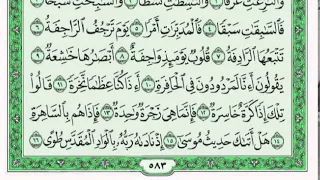 وَٱلنَّٰزِعَٰتِ غَرۡقًا ١ وَٱلنَّٰشِطَٰتِ نَشۡطًا ٢ وَٱلسَّٰبِحَٰتِ سَبۡحًا ٣
فَٱلسَّٰبِقَٰتِ سَبۡقًا ٤ فَٱلۡمُدَبِّرَٰتِ أَمۡرًا ٥ يَوۡمَ تَرۡجُفُ ٱلرَّاجِفَةُ ٦
تَتۡبَعُهَا ٱلرَّادِفَةُ ٧ قُلُوبٌ يَوۡمَئِذٍ وَاجِفَةٌ ٨ أَبۡصَٰرُهَا خَٰشِعَةٌ ٩
يَقُولُونَ أَءِنَّا لَمَرۡدُودُونَ فِي ٱلۡحَافِرَةِ ١٠ أَءِذَا كُنَّا عِظَٰمًا نَّخِرَةً ١١ قَالُواْ
تِلۡكَ إِذًا كَرَّةٌ خَاسِرَةٌ ١٢ فَإِنَّمَا هِيَ زَجۡرَةٌ وَٰحِدَةٌ ١٣ فَإِذَا هُم بِٱلسَّاهِرَةِ
١٤ هَلۡ أَتَىٰكَ حَدِيثُ مُوسَىٰٓ ١٥ إِذۡ نَادَىٰهُ رَبُّهُۥ بِٱلۡوَادِ ٱلۡمُقَدَّسِ طُوًى ١٦
٥٨٣